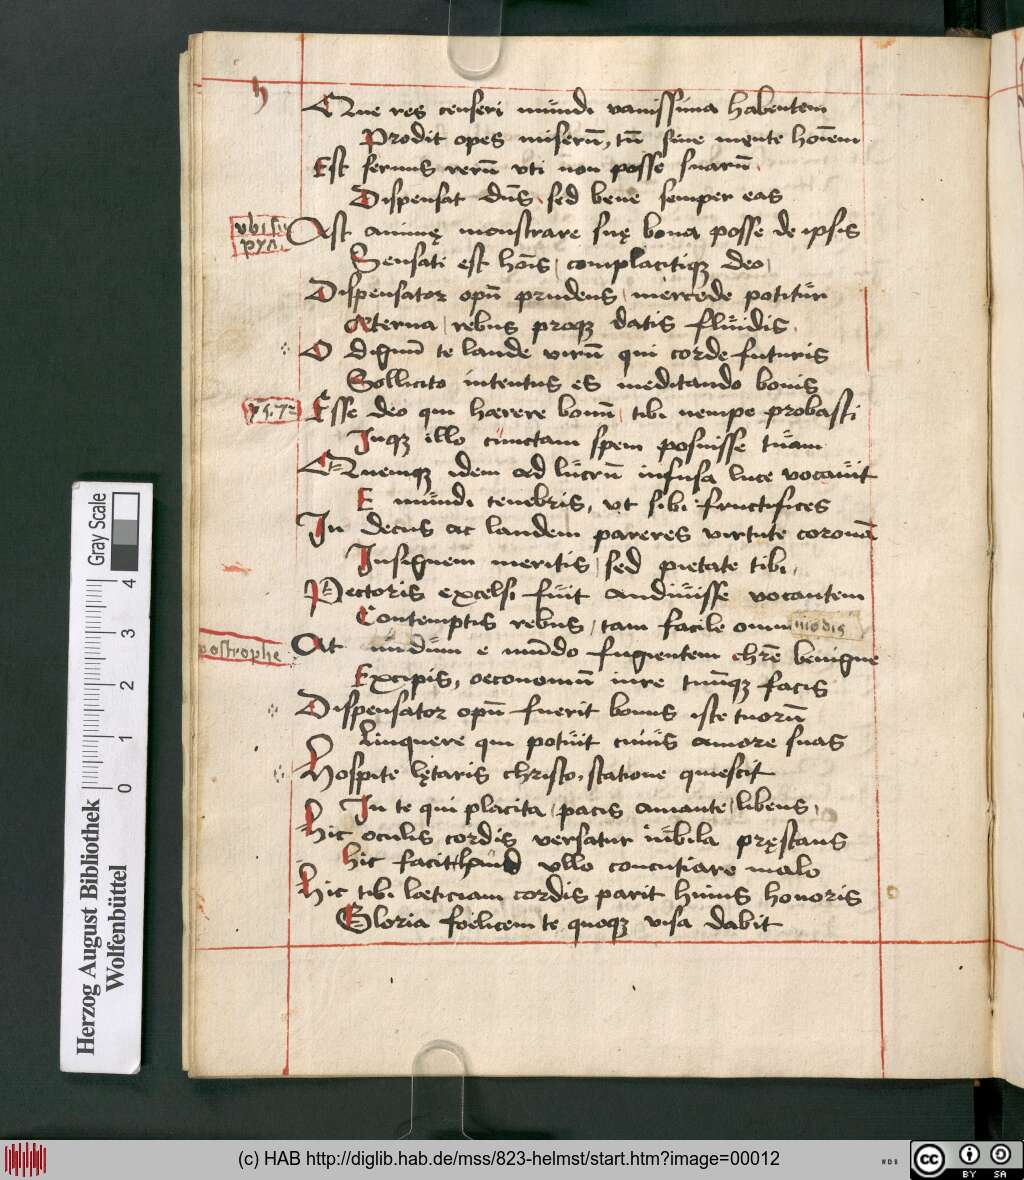 Que res censeri mundi vanissima habentem
Prodit opes miserū, tū sine mente hoīem
Est seruus rerū vti non posse suarū.
Dispensat dn̄s, sed bene semper eas
Ast animę monstrare suę bona posse de ipsis
Sensati est hoīs, complacitiqz deo,
Dispensator opū prudens, mercede potitur
Æterna, rebus proqz datis fluidis.
O dignū te laude virū qui corde futuris
Sollicito intentus es meditando bonis
Esse deo qui hærere bonū, tibi nempe probasti
Inqz illo cunctam spem posuisse tuam
Quemqz idem ad lucrū infusa luce vocauit
E mundi tenebris, vt sibi fructifices
In decus ac laudem pareres virtute coronā
Insignem meritis, sed pietate tibi,
Pectoris excelsi fuit audiuisse vocantem
Contemptis rebus, tam facile omnimodis
postrophe
At nudum e mūdo fugientem chrē benigne
Excipis, oeconomū iure tuūqz facis
Dispensator opū fuerit bonus iste tuorū
Linquere qui potuit cuius amore suas
Hospite lętaris christo, statione quiescit
In te qui placita, pacis amante, libens,
Hic oculis cordis versatur nubila pręstans
Hic facit haud vllo concutiare malo
Hic tibi læticiam cordis parit huius honoris
Gloria foelicem te quoqz visa dabit
Gray Scale
4
3
2
1
0
Herzog August Bibliothek
Wolfenbüttel
(c) HAB http://diglib.hab.de/mss/823-helmst/start.htm?image=00012
WDB
cc
BY SA